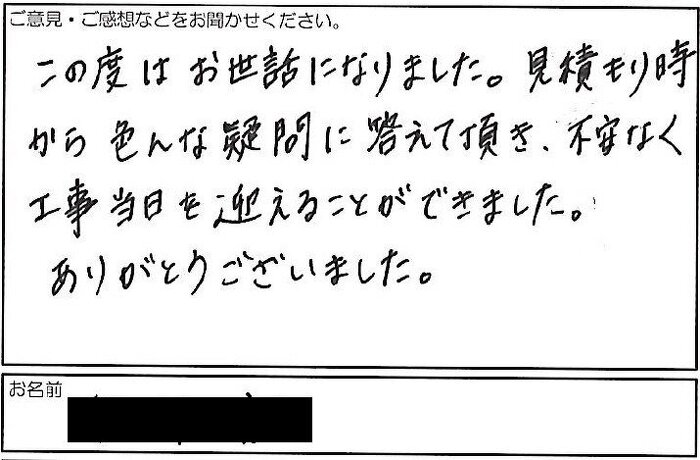 ご意見・ご感想などをお聞かせください。
この度はお世話になりました。見積もり時
から色んな疑問に答えて頂き、不安なく
工事当日を迎えることができました。
ありがとうございました。
お名前